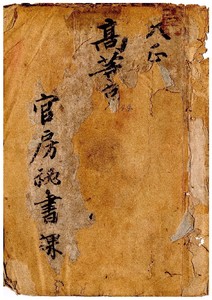 大正
高等官
官房秘書課